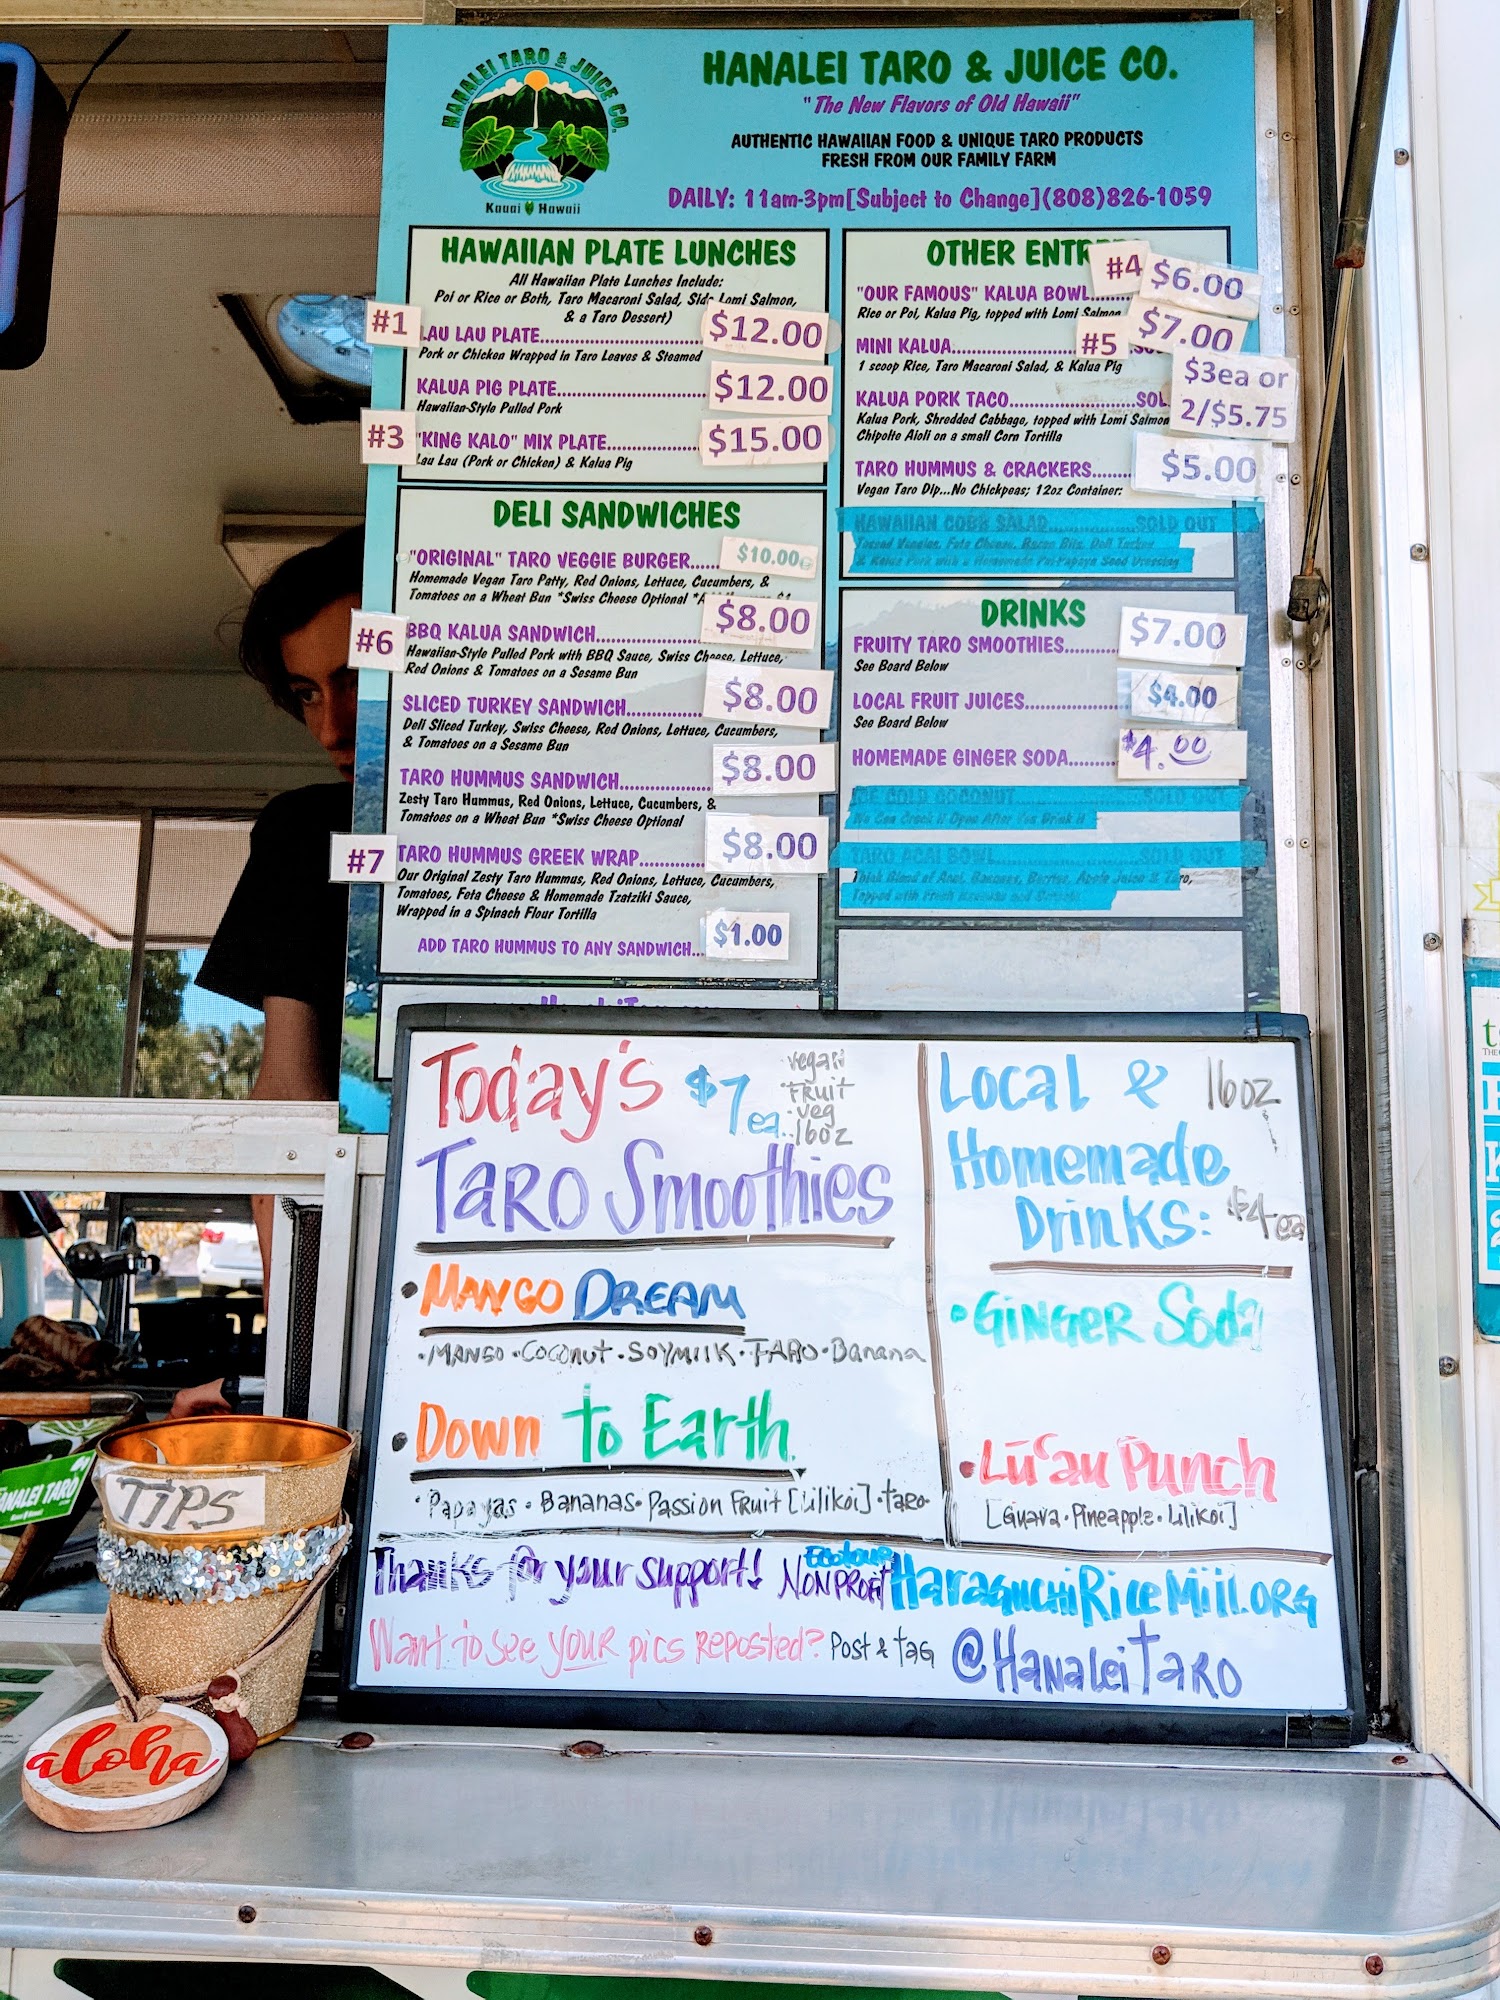 HANALEI TARO & JUICE CO.
Kauai Hawaii
HANALEI TARO & JUICE CO.
"The New Flavors of Old Hawaii"
AUTHENTIC HAWAIIAN FOOD & UNIQUE TARO PRODUCTS
FRESH FROM OUR FAMILY FARM
DAILY: 11am-3pm[Subject to Change](808)826-1059
HAWAIIAN PLATE LUNCHES
All Hawaiian Plate Lunches Include:
Poi or Rice or Both, Taro Macaroni Salad, Side Lomi Salmon,
& a Taro Dessert)
#1 LAU LAU PLATE $12.00
Pork or Chicken Wrapped in Taro Leaves & Steamed
KALUA PIG PLATE $12.00
Hawaiian-Style Pulled Pork
#3 "KING KALO" MIX PLATE $15.00
Lau Lau (Pork or Chicken) & Kalua Pig
DELI SANDWICHES
"ORIGINAL" TARO VEGGIE BURGER $10.00
Homemade Vegan Taro Patty, Red Onions, Lettuce, Cucumbers, &
Tomatoes on a Wheat Bun *Swiss Cheese Optional
#6 BBQ KALUA SANDWICH $8.00
Hawaiian-Style Pulled Pork with BBQ Sauce, Swiss Cheese, Lettuce,
Red Onions & Tomatoes on a Sesame Bun
SLICED TURKEY SANDWICH $8.00
Deli Sliced Turkey, Swiss Cheese, Red Onions, Lettuce, Cucumbers,
& Tomatoes on a Sesame Bun
TARO HUMMUS SANDWICH $8.00
Zesty Taro Hummus, Red Onions, Lettuce, Cucumbers, &
Tomatoes on a Wheat Bun *Swiss Cheese Optional
#7 TARO HUMMUS GREEK WRAP $8.00
Our Original Zesty Taro Hummus, Red Onions, Lettuce, Cucumbers,
Tomatoes, Feta Cheese & Homemade Tzatziki Sauce,
Wrapped in a Spinach Flour Tortilla
ADD TARO HUMMUS TO ANY SANDWICH... $1.00
OTHER
#4 $6.00
"OUR FAMOUS" KALUA BOWL
Rice or Poi, Kalua Pig, topped with Lomi Salmon
MINI KALUA #5 $7.00
1 scoop Rice, Taro Macaroni Salad, & Kalua Pig
KALUA PORK TACO $3ea or 2/$5.75
Kalua Pork, Shredded Cabbage, topped with Lomi Salmon
Chipolte Aioli on a small Corn Tortilla
TARO HUMMUS & CRACKERS $5.00
Vegan Taro Dip...No Chickpeas; 12oz Container:
HAWAIIAN COBB SALAD SOLD OUT
Tossed Veggies, Feta Cheese, Bacon Bits, Deli Turkey
& Kalua Pork with a Homemade Poi-Papaya Seed Dressing
DRINKS
FRUITY TARO SMOOTHIES $7.00
See Board Below
LOCAL FRUIT JUICES $4.00
See Board Below
HOMEMADE GINGER SODA $4.00
ICE COLD COCONUT SOLD OUT
We Can Crack It Open After You Drink It
TARO ACAI BOWL SOLD OUT
Thick Blend of Acai, Bananas, Berries, Apple Juice & Taro,
Topped with Fresh Bananas and
Today's $7 ea. vegan
fruit
veg
16oz
Taro Smoothies
• Mango Dream
• Mango • Coconut • Soymilk • Taro • Banana
• Down to Earth
• Papayas • Bananas • Passion Fruit [Lilikoi] • taro
Local & 16oz
Homemade
Drinks: $4 ea
• Ginger Soda
• Lū'au Punch
[Guava • Pineapple • Lilikoi]
Thanks for your support! Ecotour NonProfit HaraguchiRiceMill.org
Want to see YOUR pics reposted? Post & tag @HanaleiTaro
TIPS
HANALEI TARO
aloha